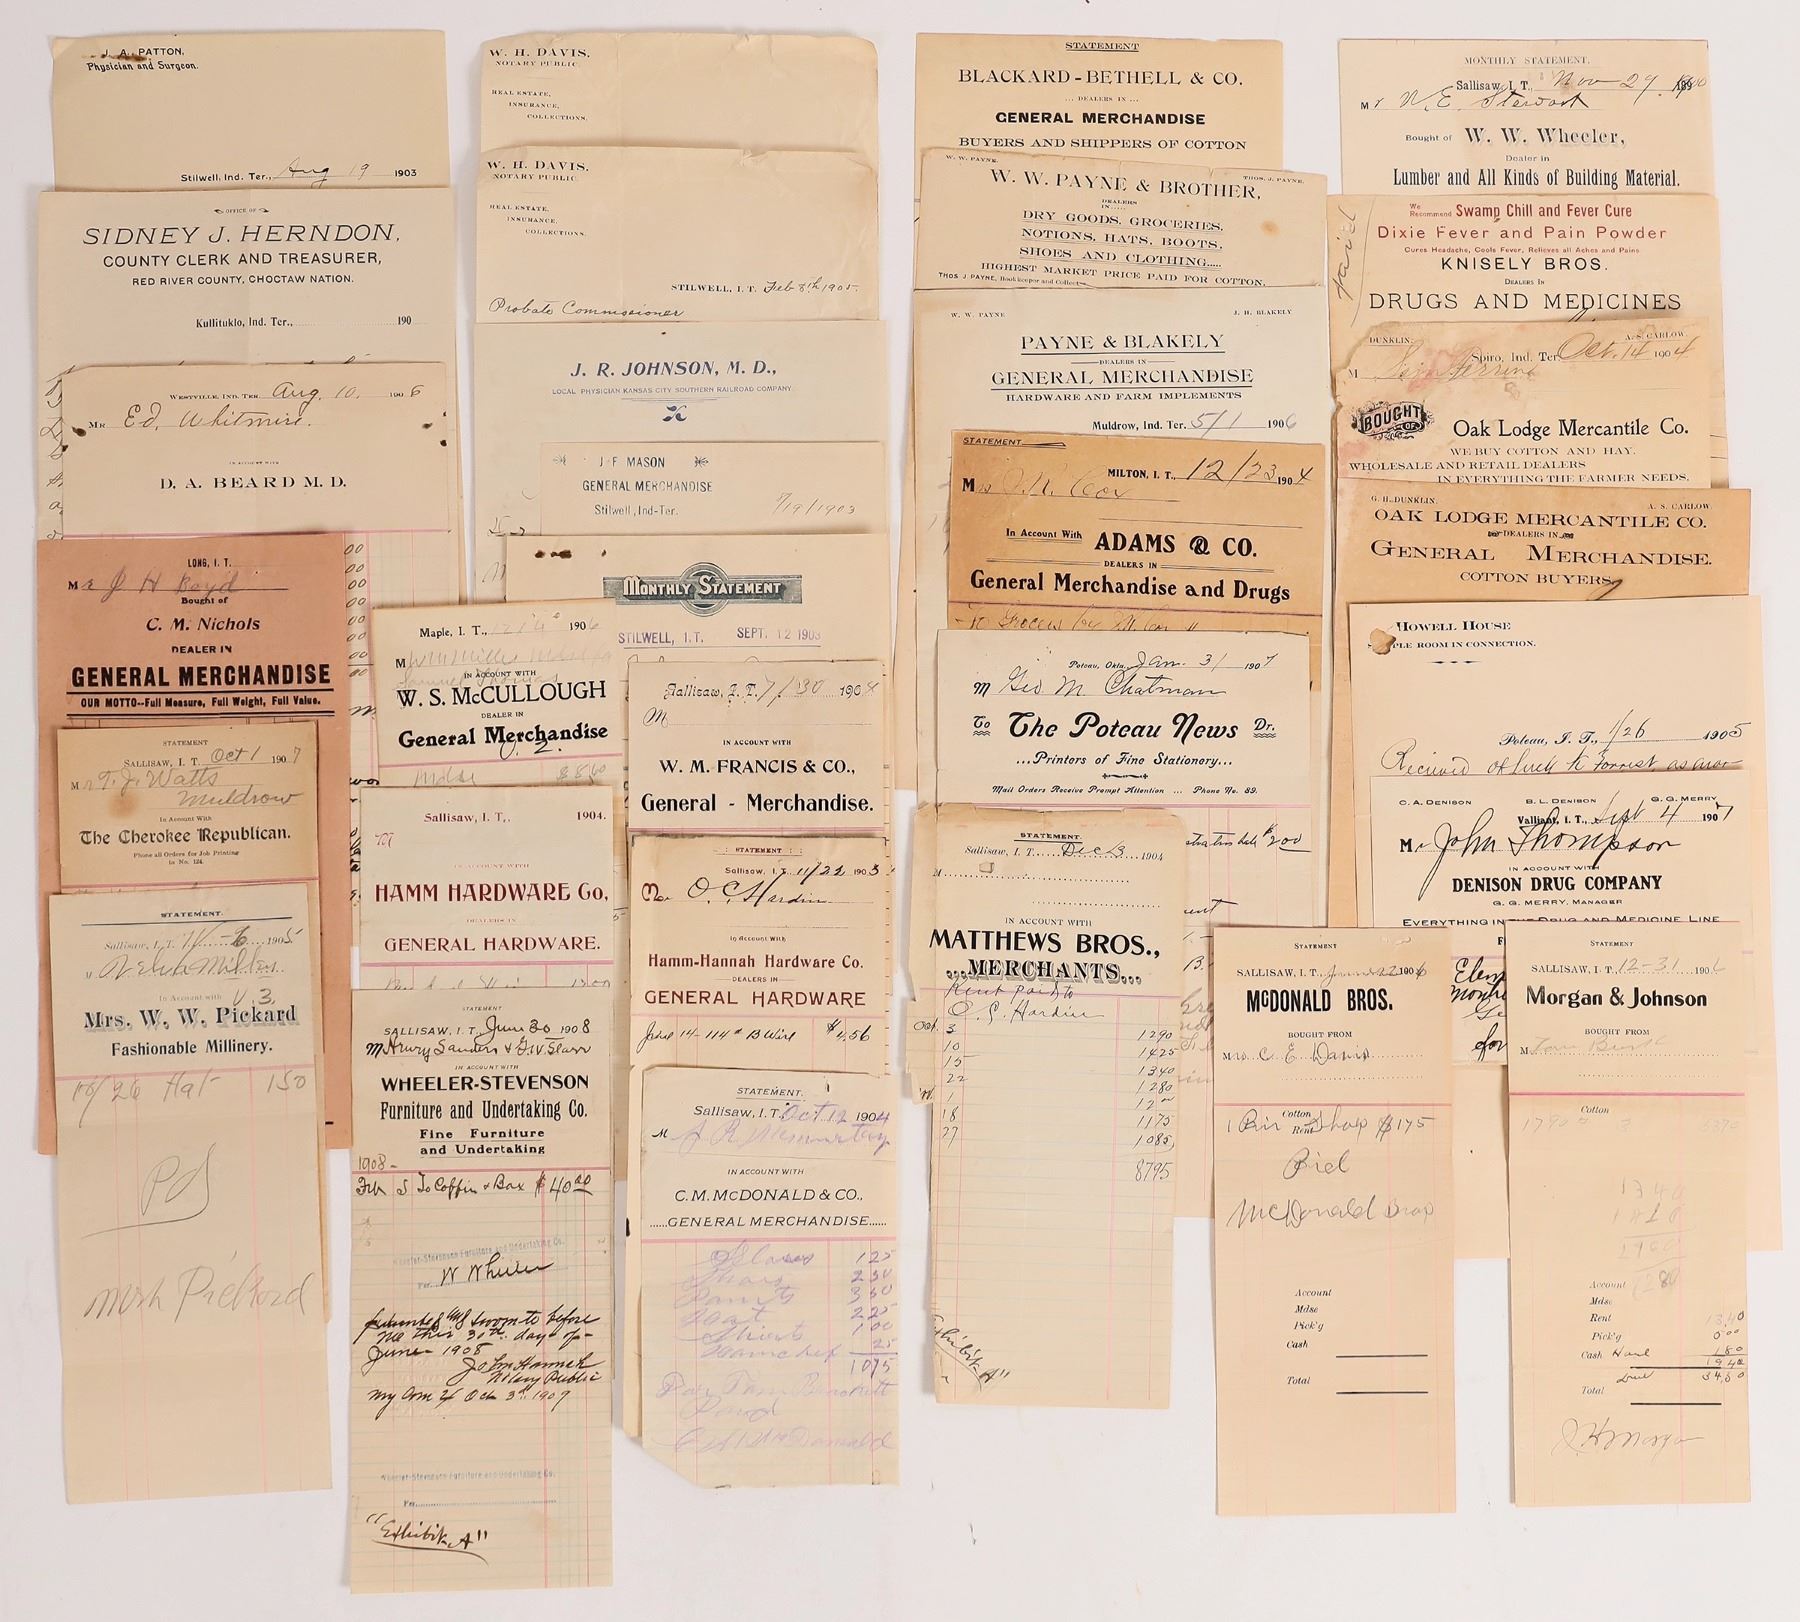 J. A. PATTON,
Physician and Surgeon.
Stilwell, Ind. Ter., Aug 19 1903
OFFICE OF
SIDNEY J. HERNDON,
COUNTY CLERK AND TREASURER,
RED RIVER COUNTY, CHOCTAW NATION.
Kullituklo, Ind. Ter., 190
WESTVILLE, IND. TER. Aug. 10. 1906
MR Ed. Whitmire.
IN ACCOUNT WITH
D. A. BEARD M. D.
LONG, I. T.
Mr J H Boyd
Bought of
C. M. Nichols
DEALER IN
GENERAL MERCHANDISE
OUR MOTTO--Full Measure, Full Weight, Full Value.
STATEMENT
SALLISAW, I. T. Oct 1 1907
Mr T. J. Watts
Muldrow
In Account With
The Cherokee Republican.
Phone all Orders for Job Printing
to No. 124.
STATEMENT.
Sallisaw, I. T. 1905.
In Account with
Mrs. W. W. Pickard
Fashionable Millinery.
10/26 Hat 150
Pd
W. H. DAVIS.
NOTARY PUBLIC.
REAL ESTATE,
INSURANCE,
COLLECTIONS.
W. H. DAVIS.
NOTARY PUBLIC.
REAL ESTATE,
INSURANCE,
COLLECTIONS.
STILWELL, I. T. Feb 8th 1905.
Probate Commissioner
J. R. JOHNSON, M. D.,
LOCAL PHYSICIAN KANSAS CITY SOUTHERN RAILROAD COMPANY.
J F MASON
GENERAL MERCHANDISE
Stilwell, Ind-Ter.
7/19/1903
MONTHLY STATEMENT
STILWELL, I.T. SEPT. 12 1903
Maple, I. T., 1906
M
IN ACCOUNT WITH
W. S. MCCULLOUGH
DEALER IN
General Merchandise
Mdse
Sallisaw, I. T. 7/30 1904
M
IN ACCOUNT WITH
W. M. FRANCIS & CO.,
General - Merchandise.
Sallisaw, I. T., 1904.
M
IN ACCOUNT WITH
HAMM HARDWARE Co,
DEALERS IN
GENERAL HARDWARE.
STATEMENT
Sallisaw, I. T. 11/22 1903
O. C. Hardin
In Account With
Hamm-Hannah Hardware Co.
DEALERS IN
GENERAL HARDWARE
STATEMENT
SALLISAW, I. T. June 30 1908
M Henry Sanders & G.W. Starr
IN ACCOUNT WITH
WHEELER-STEVENSON
Furniture and Undertaking Co.
Fine Furniture
and Undertaking
1908-
Feb 5 To Coffin & Box $40.00
Wheeler-Stevenson Furniture and Undertaking Co.
Per W Wheeler
Subscribed and Sworn to before
me this 30th day of
June 1908
John Hannah
Notary Public
My Com Ex Oct 3rd 1909
Wheeler-Stevenson Furniture and Undertaking Co.
Per
"Exhibit A"
STATEMENT.
Sallisaw, I. T. Oct 12 1904
M
IN ACCOUNT WITH
C. M. MCDONALD & CO.,
GENERAL MERCHANDISE
Gloves 125
Shoes 250
Pants 350
Hat 225
Shirts 100
25
1075
Paid
STATEMENT
BLACKARD-BETHELL & CO.
... DEALERS IN ...
GENERAL MERCHANDISE
BUYERS AND SHIPPERS OF COTTON
W. W. PAYNE.
THOS. J. PAYNE.
W. W. PAYNE & BROTHER,
DEALERS
IN.....
DRY GOODS, GROCERIES,
NOTIONS, HATS, BOOTS,
SHOES AND CLOTHING.....
HIGHEST MARKET PRICE PAID FOR COTTON.
THOS J. PAYNE, Bookkeeper and Collector
W. W. PAYNE
J. H. BLAKELY
PAYNE & BLAKELY
DEALERS IN
GENERAL MERCHANDISE
HARDWARE AND FARM IMPLEMENTS
Muldrow, Ind. Ter. 5/1 1906
STATEMENT
MILTON, I. T., 12/23 1904
Mrs J. R. Cox
In Account With ADAMS & CO.
DEALERS IN
General Merchandise and Drugs
Poteau, Okla. Jan. 31 1907
M Geo M. Chatman
To The Poteau News Dr.
...Printers of Fine Stationery...
Mail Orders Receive Prompt Attention ... Phone No. 89.
STATEMENT.
Sallisaw, I. T. Dec 3 1904
M
IN ACCOUNT WITH
MATTHEWS BROS.,
...MERCHANTS...
Rent paid to
O. C. Hardin
Oct. 3 1290
10 1425
15 1340
22 1280
1 1200
18 1175
27 1085
8795
Exhibit "A"
MONTHLY STATEMENT.
Sallisaw, I. T., Nov 29, 1900
Mr W. E. Stewart
Bought of W. W. Wheeler,
Dealer in
Lumber and All Kinds of Building Material.
We
Recommend Swamp Chill and Fever Cure
Dixie Fever and Pain Powder
Cures Headache, Cools Fever, Relieves all Aches and Pains
KNISELY BROS.
DEALERS IN
DRUGS AND MEDICINES
DUNKLIN.
A. S. CARLOW.
Spiro, Ind. Ter. Oct. 14 1904
M
BOUGHT OF
Oak Lodge Mercantile Co.
WE BUY COTTON AND HAY.
WHOLESALE AND RETAIL DEALERS
IN EVERYTHING THE FARMER NEEDS.
G. H. DUNKLIN.
A. S. CARLOW.
OAK LODGE MERCANTILE CO.
DEALERS IN
GENERAL MERCHANDISE.
COTTON BUYERS.
HOWELL HOUSE
PLE ROOM IN CONNECTION.
Poteau, I. T., 1/26 1905
C. A. DENISON
B. L. DENISON
G. G. MERRY
Valliant, I. T., Sept 4 1907
Mr John Thompson
IN ACCOUNT WITH
DENISON DRUG COMPANY
G. G. MERRY, MANAGER
EVERYTHING IN THE DRUG AND MEDICINE LINE
STATEMENT
SALLISAW, I. T., 1906
MCDONALD BROS.
BOUGHT FROM
Mrs. C. E. Davis
Cotton
Rent
$175
McDonald Bros
Account
Mdse
Pick'g
Cash
Total
STATEMENT
SALLISAW, I. T. 12-31 190
Morgan & Johnson
BOUGHT FROM
M
Cotton
Account
Mdse
Rent 13.40
Pick'g
Cash
Total
J H Morgan